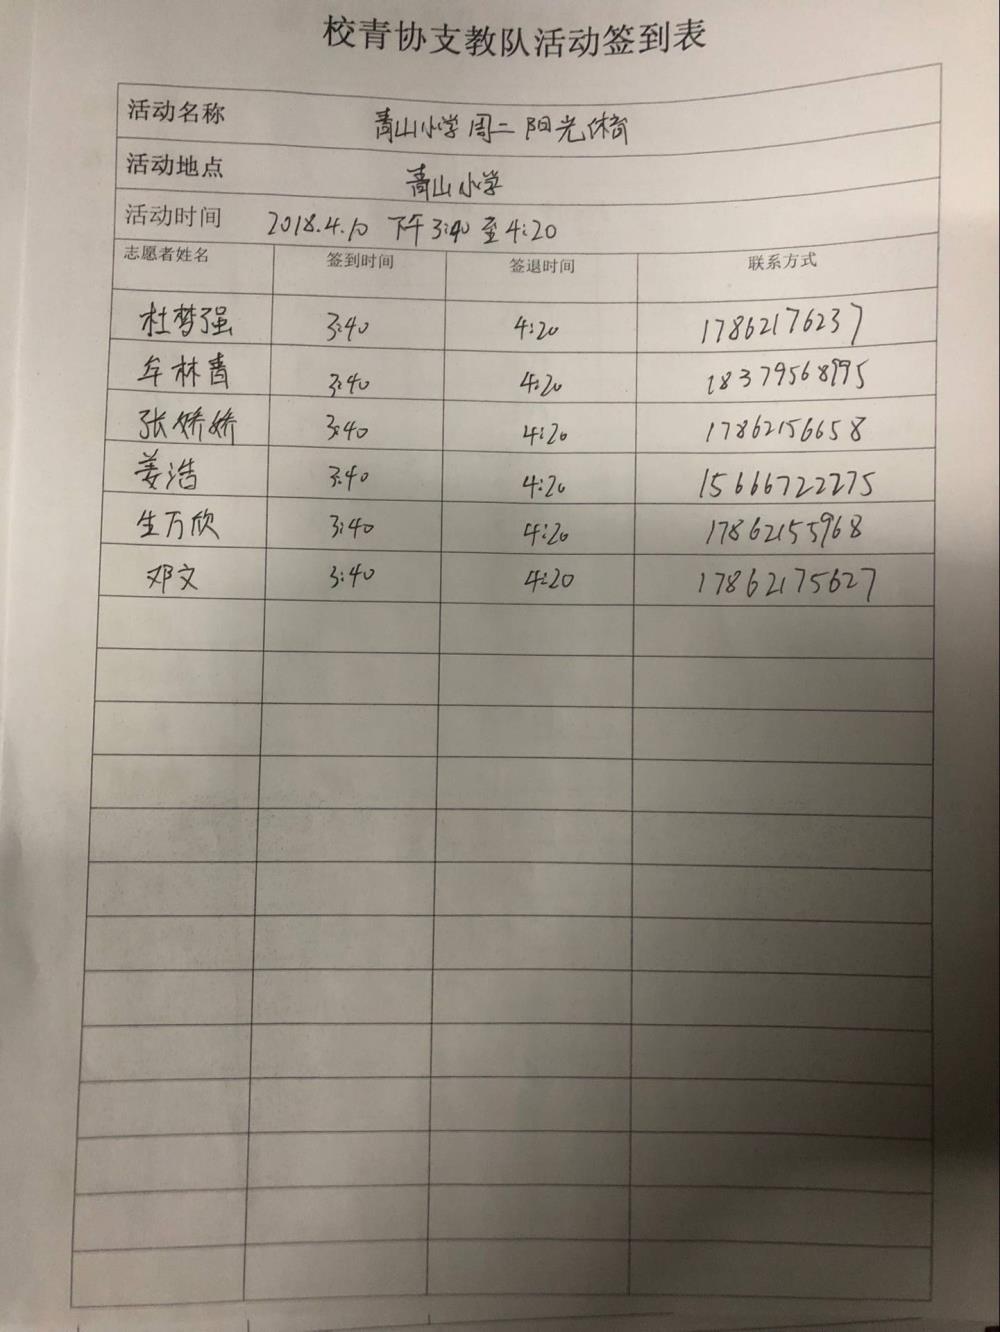 校青协支教队活动签到表
活动名称 青山小学周二阳光体育
活动地点 青山小学
活动时间 2018.4.10 下午3:40至4:20
志愿者姓名 签到时间 签退时间 联系方式
杜梦强 3:40 4:20 17862176237
牟林青 3:40 4:20 18379568995
张娇娇 3:40 4:20 17862156658
姜浩 3:40 4:20 15666722275
生万欣 3:40 4:20 17862155968
邓文 3:40 4:20 17862175627